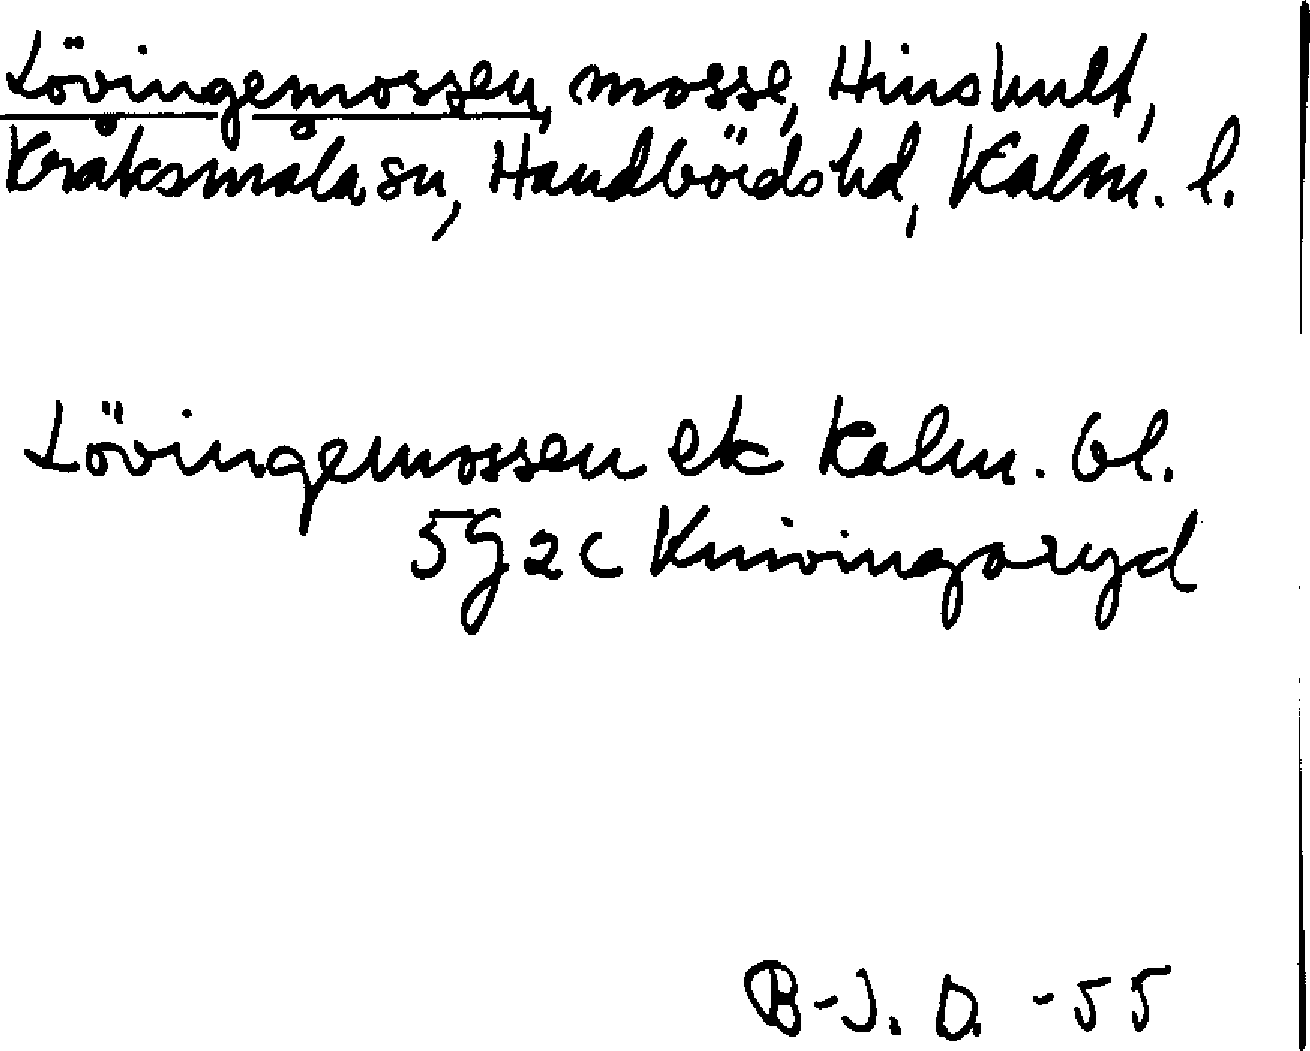 Lövingemossen, mosse, Hinshult,
Kråksmåla sn, Handbörds hd, Kalm. l.
Lövingemossen ek Kalm. bl.
5g2c Knivingaryd
B-J. O. -55